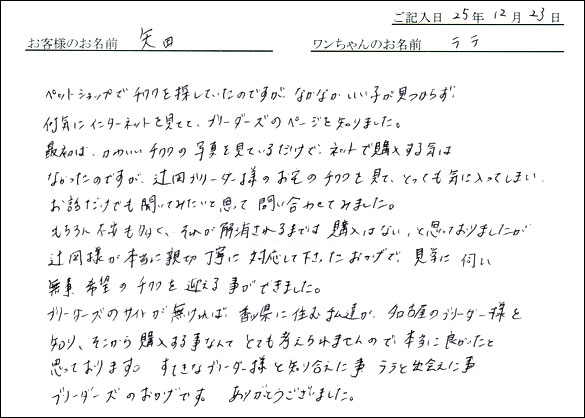 ご記入日 25年 12月 23日
お客様のお名前 矢田 ワンちゃんのお名前 ララ
ペットショップでチワワを探していたのですが、なかなかいい子が見つからず、
何気にインターネットを見てて、ブリーダーズのページを知りました。
最初は、かわいいチワワの写真を見ているだけで、ネットで購入する気は
なかったのですが、辻岡ブリーダー様のお宅のチワワを見て、とっても気に入ってしまい、
お話だけでも聞いてみたいと思って問い合わせてみました。
もちろん不安も多く、それが解消されるまでは購入はない、と思っておりましたが
辻岡様が本当に親切丁寧に対応して下さったおかげで、見学に伺い
無事希望のチワワを迎える事ができました。
ブリーダーズのサイトが無ければ、香川県に住む私達が、名古屋のブリーダー様を
知り、そこから購入する事なんてとても考えられませんので、本当に良かったと
思っております。すてきなブリーダー様と知り合えた事 ララと出会えた事
ブリーダーズのおかげです。ありがとうございました。